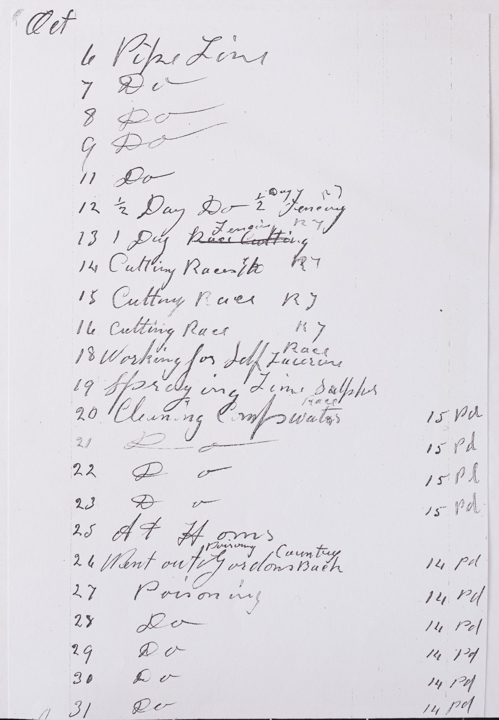 Oct
6 Pipe Line
7 Do
8 Do
9 Do
11 Do
12 ½ Day Do ½ Day Fencing R 7
13 1 Day Race Cutting Fencing R 7
14 Cutting Race R 7
15 Cutting Race R 7
16 Cutting Race R 7
18 Working for Self Race Lucerne
19 Spraying Lime Sulpher
20 Cleaning Race water 15 Pd
21 Do 15 Pd
22 Do 15 Pd
23 Do 15 Pd
25 At Home
26 Went out Poisoning Gordons Back Country 14 Pd
27 Poisoning 14 Pd
28 Do 14 Pd
29 Do 14 Pd
30 Do 14 Pd
31 Do 14 Pd